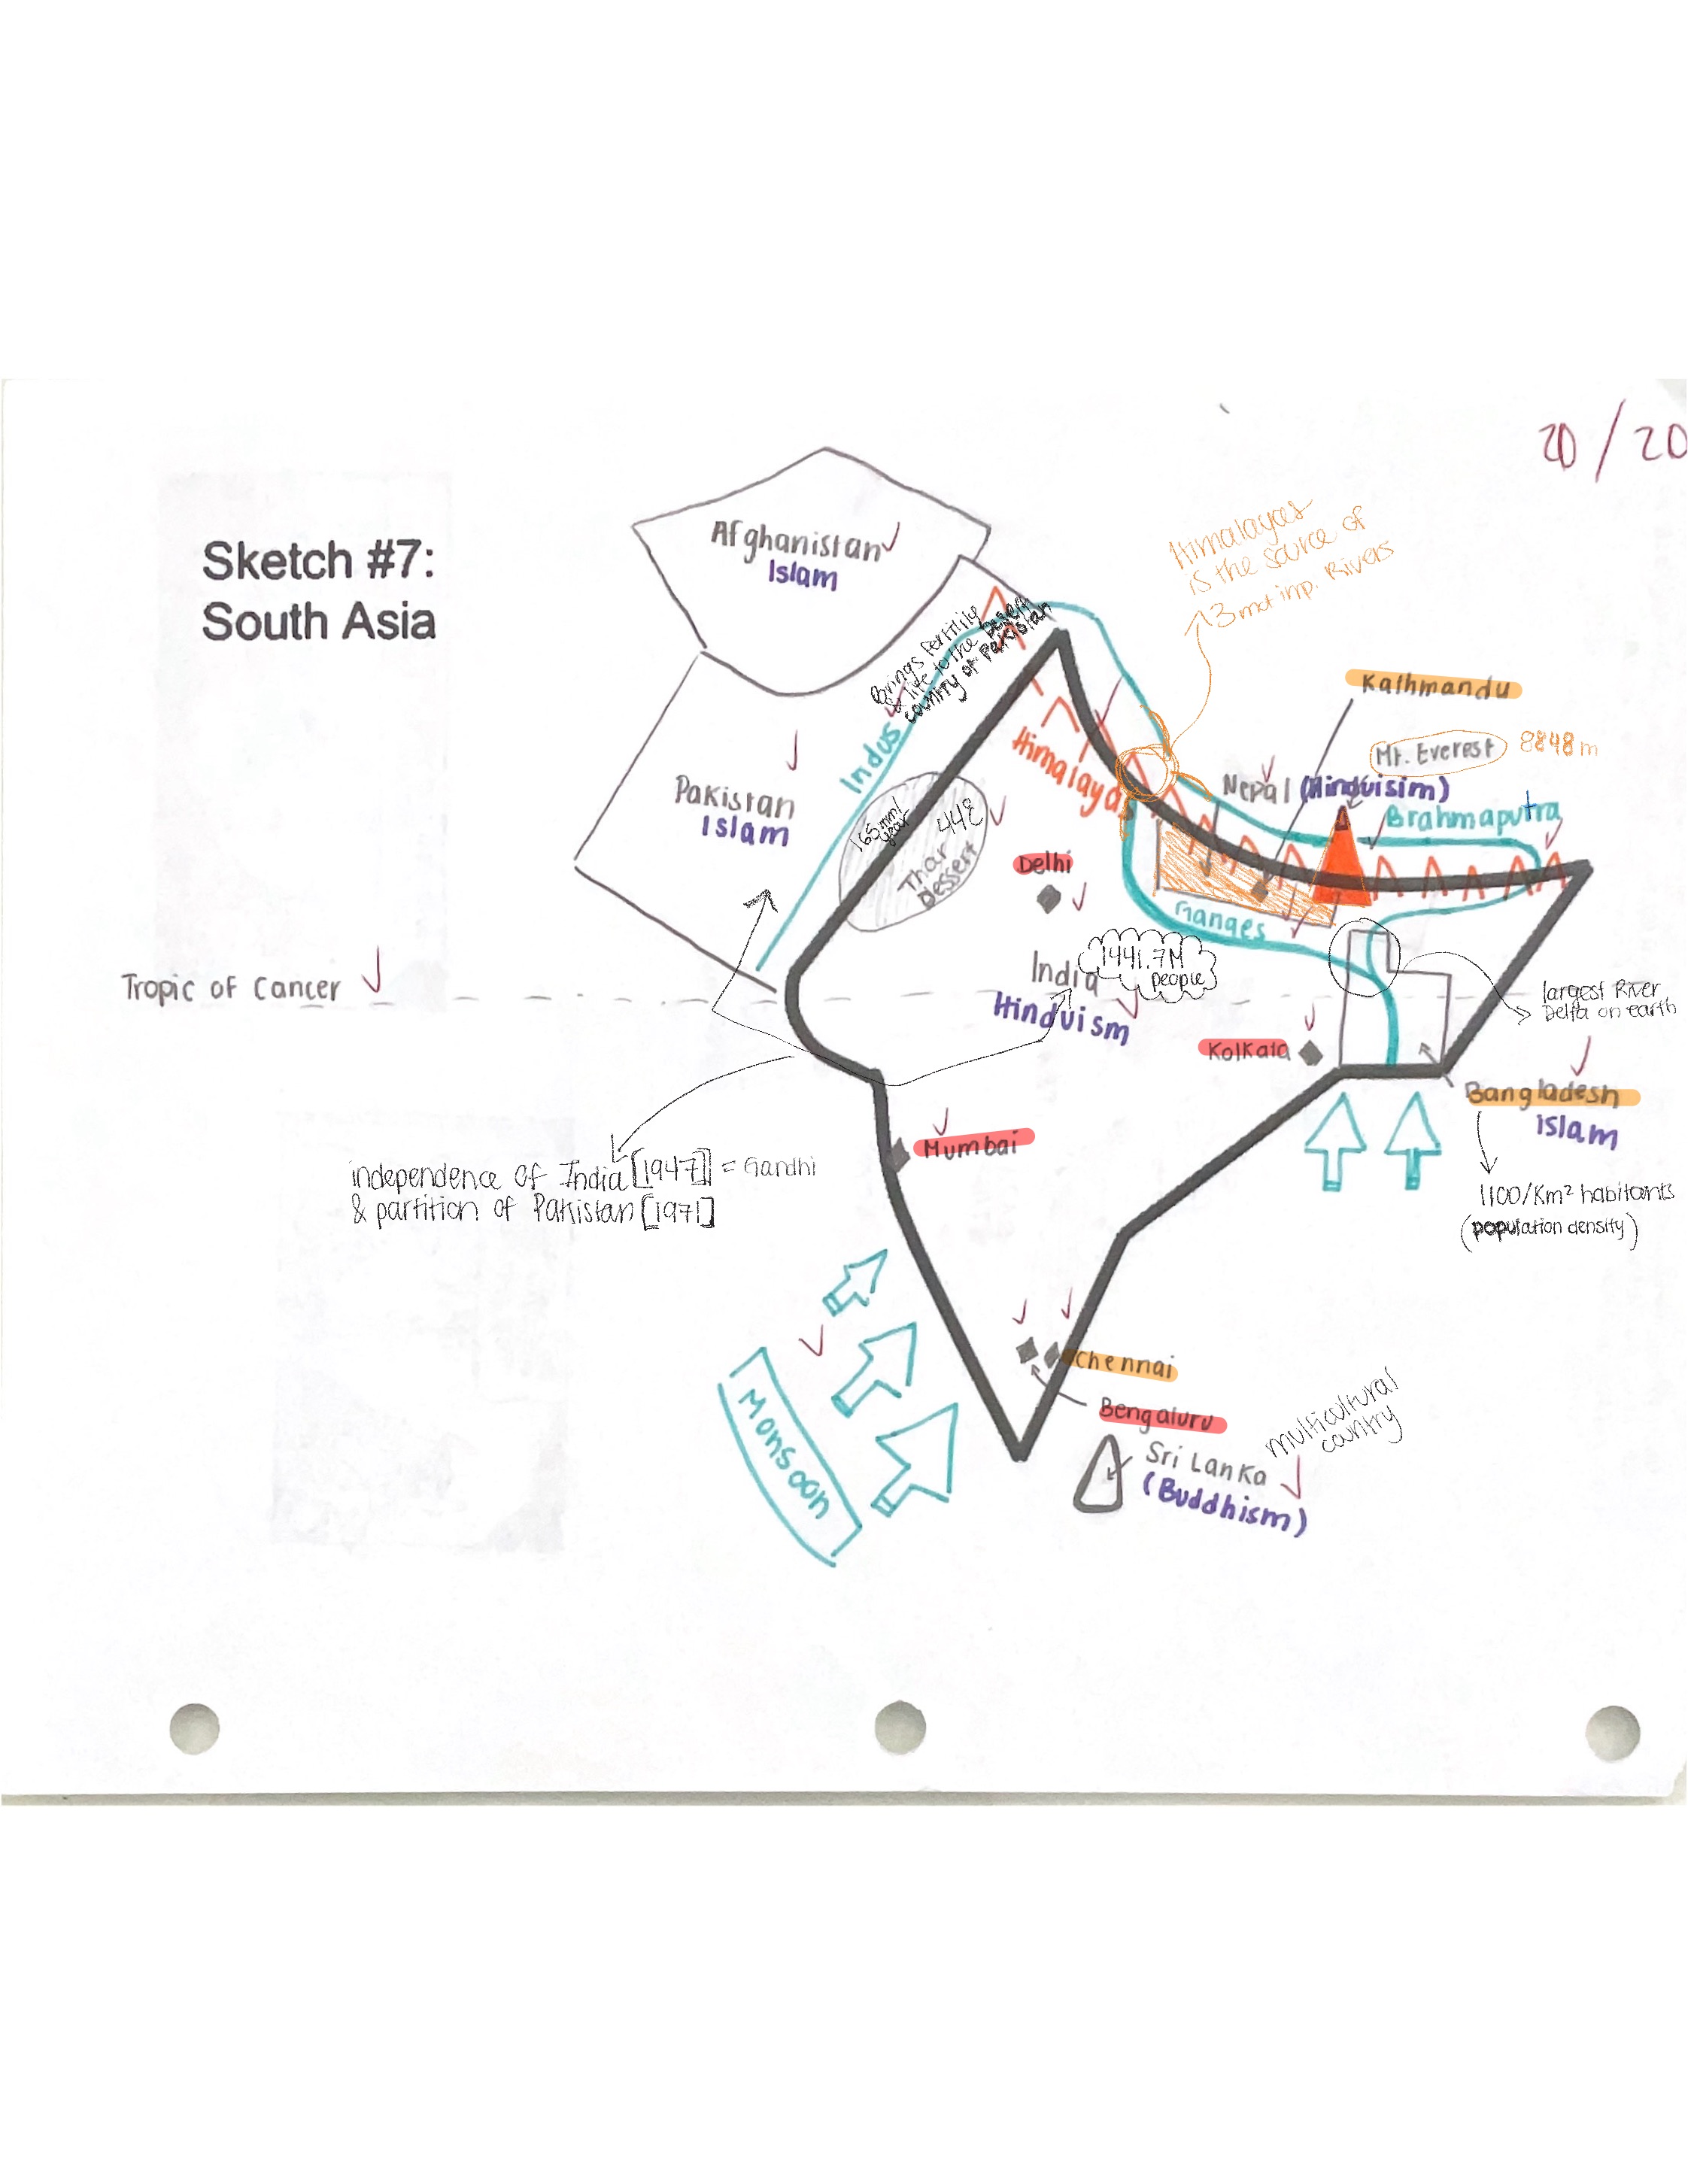 20/20
Sketch #7:
South Asia
Afghanistan
Islam
Himalayas
is the source of
3 most imp. Rivers
Brings fertility
& life to the desert
country of Pakistan
Indus
Pakistan
Islam
165mm/
year
44°C
Thar
Dessert
Himalaya
Kathmandu
Mt. Everest 8848m
Nepal (Hinduisim)
Brahmaputra
Delhi
Ganges
India
1441.7M
people
Hinduism
Tropic of Cancer
largest River
Delta on earth
Kolkata
Bangladesh
Islam
1100/Km² habitants
(population density)
Mumbai
independence of India [1947] = Gandhi
& partition of Pakistan [1971]
Monsoon
Chennai
Bengaluru
multicultural
country
Sri Lanka
(Buddhism)